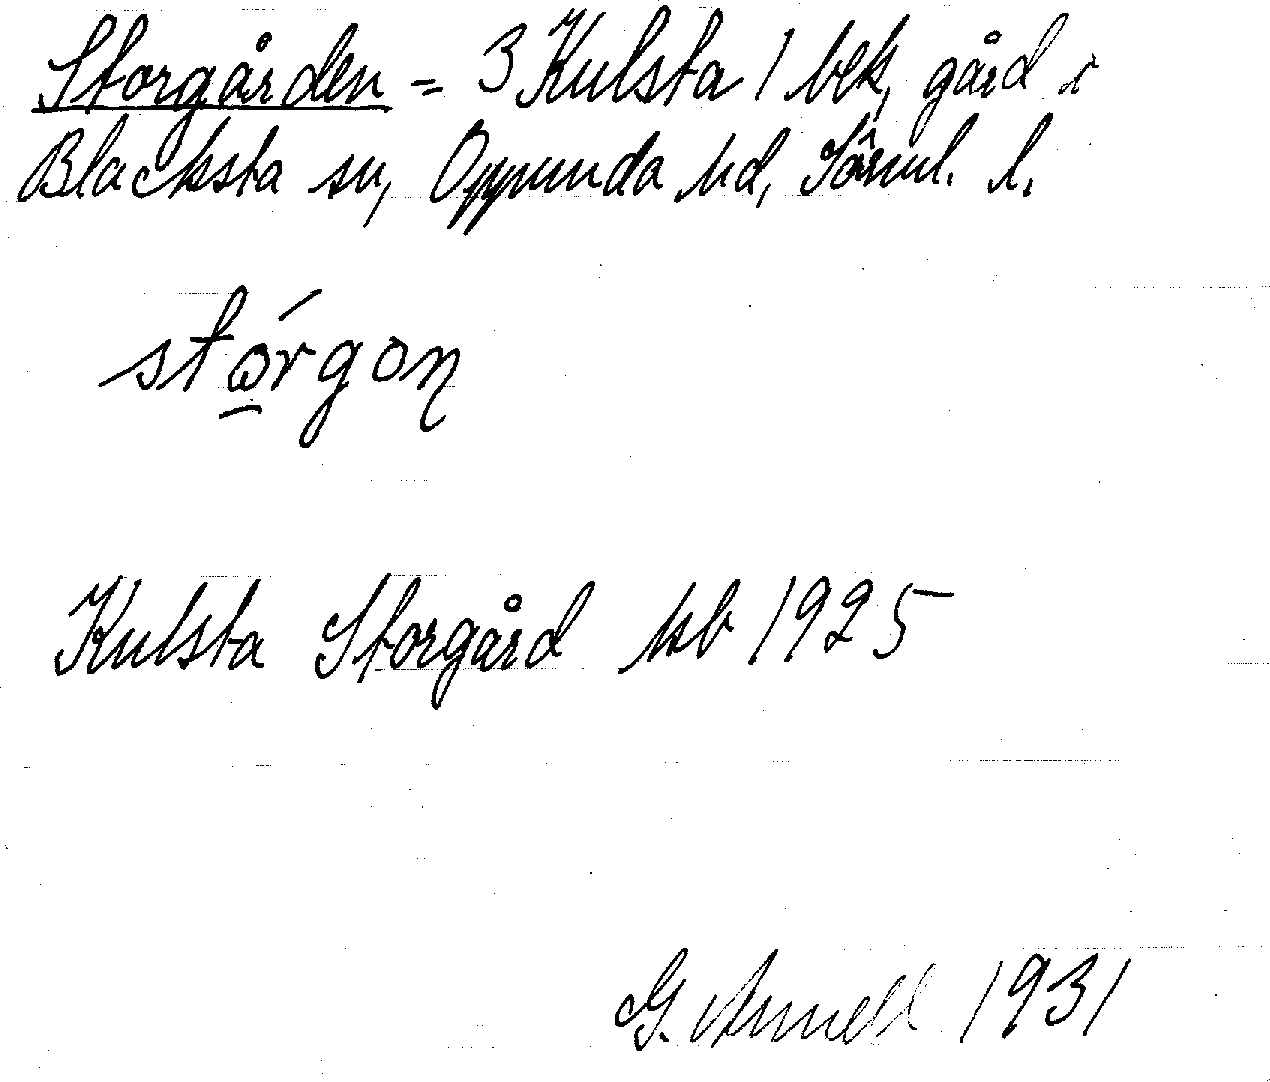 Storgården = 3 Kulsta 1 bek, gård i
Blacksta sn, Oppunda hd, Södml. l.
stǫ́rgon
Kulsta Storgård kb 1925
G. Arnell 1931